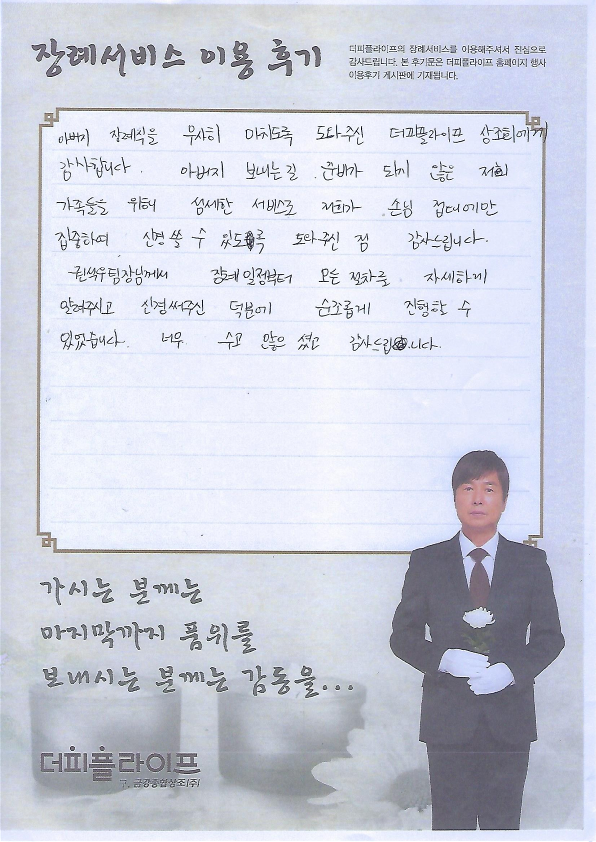 장례서비스 이용 후기
더피플라이프의 장례서비스를 이용해주셔서 진심으로
감사드립니다. 본 후기문은 더피플라이프 홈페이지 행사
이용후기 게시판에 기재됩니다.
아버지 장례식을 무사히 마치도록 도와주신 더피플라이프 상조회에게
감사합니다. 아버지 보내는 길 준비가 되지 않은 저희
가족들을 위해 섬세한 서비스로 저희가 손님 접대에만
집중하여 신경 쓸 수 있도록 도와주신 점 감사드립니다.
권석우팀장님께서 장례 일정부터 모든 절차를 자세하게
알려주시고 신경써주신 덕분에 순조롭게 진행할 수
있었습니다. 너무 수고 많은 셨고 감사드립니다.
가시는 분께는
마지막까지 품위를
보내시는 분께는 감동을...
더피플라이프
구, 금강종합상조(주)